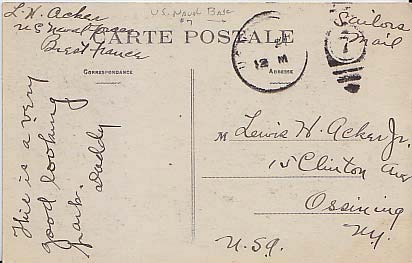 L. H. Acker
U.S. Naval Forces
Brest France
U.S. Naval Base
#7
Sailors
Mail
CARTE POSTALE
CORRESPONDANCE
ADRESSE
12 M
7
This is a very
good looking
park. Daddy
M Lewis H. Acker Jr.
15 Clinton Ave
Ossining
N.Y.
U.S.A.